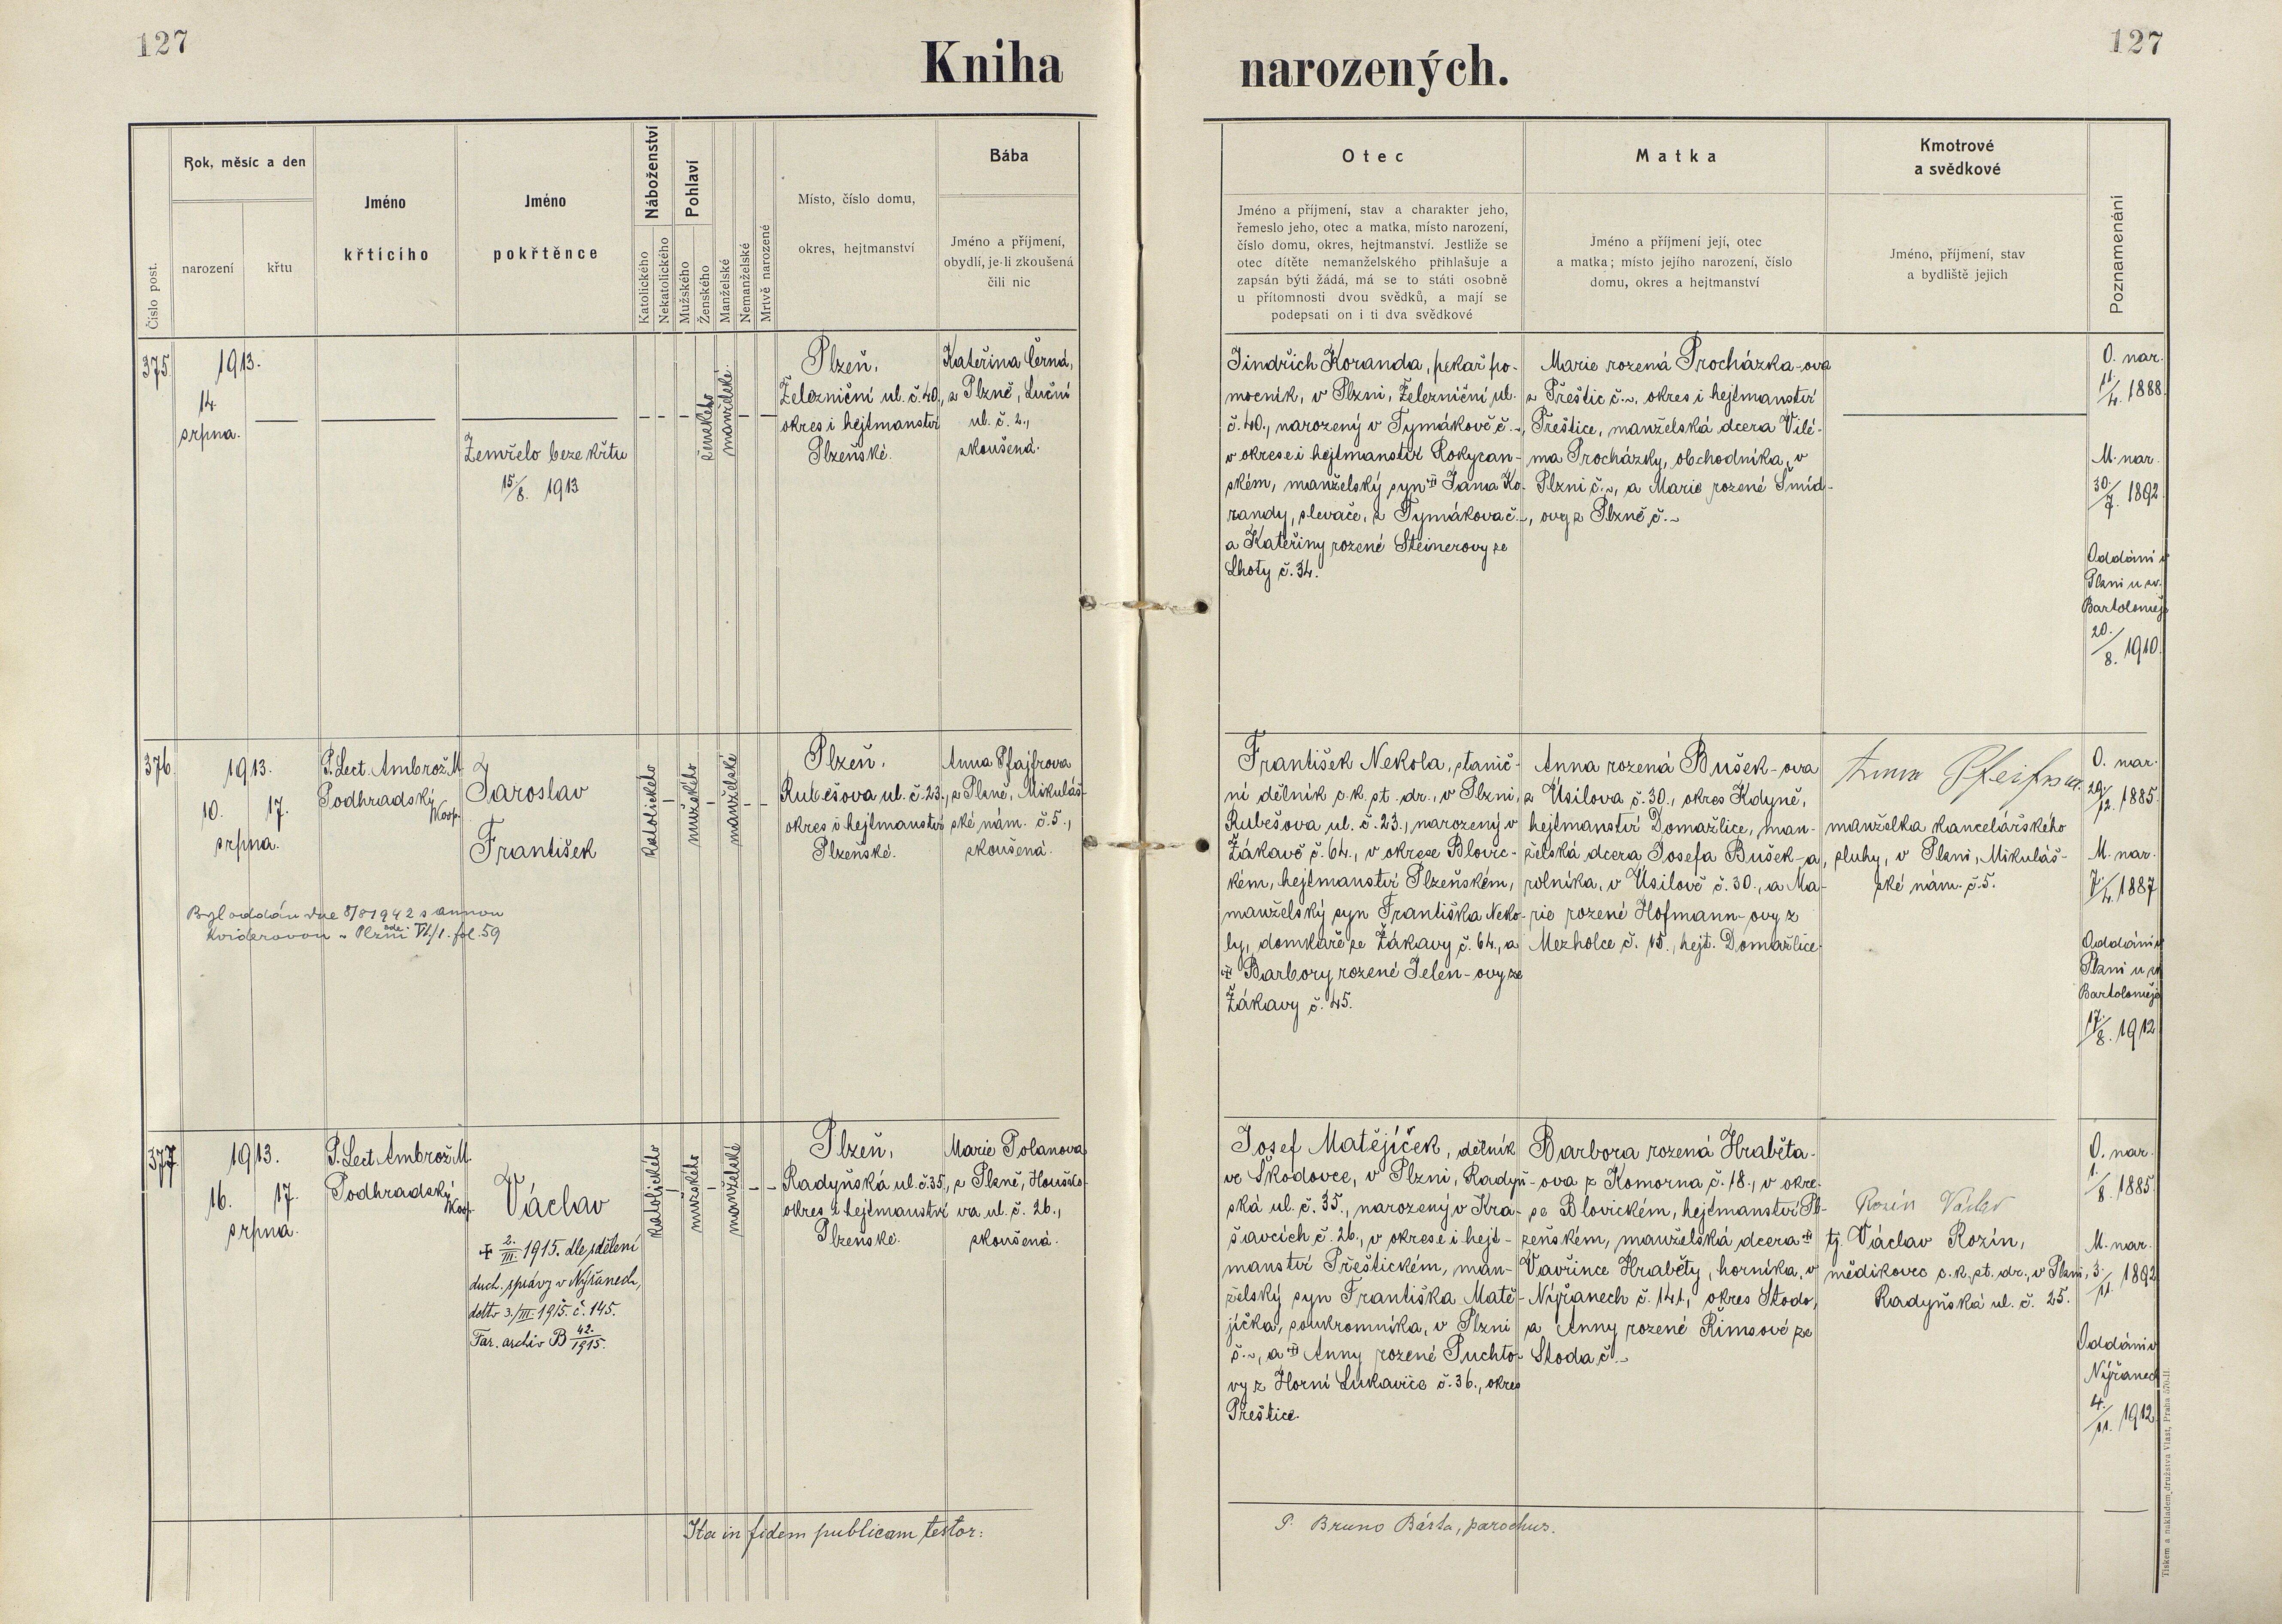 127
127
Kniha narozených.
Číslo post.
Rok, měsíc a den
narození
křtu
Jméno
křtícího
Jméno
pokřtěnce
Náboženství
Katolického
Nekatolického
Pohlaví
Mužského
Ženského
Manželské
Nemanželské
Mrtvě narozené
Místo, číslo domu,
okres, hejtmanství
Bába
Jméno a příjmení,
obydlí, je-li zkoušená
čili nic
Otec
Jméno a příjmení, stav a charakter jeho,
řemeslo jeho, otec a matka, místo narození,
číslo domu, okres, hejtmanství. Jestliže se
otec dítěte nemanželského přihlašuje a
zapsán býti žádá, má se to státi osobně
u přítomnosti dvou svědků, a mají se
podepsati on i ti dva svědkové
Matka
Jméno a příjmení její, otec
a matka; místo jejího narození, číslo
domu, okres a hejtmanství
Kmotrové
a svědkové
Jméno, příjmení, stav
a bydliště jejich
Poznamenání
375
1913.
14.
srpna.
Zemřelo beze křtu
15/8. 1913
ženského
manželské.
Plzeň,
Železniční ul. č. 40.,
okres i hejtmanství
Plzeňské.
Kateřina Černá,
z Plzně, Luční
ul. č. 2.,
zkoušená.
Jindřich Koranda, pekař po-
mocník, v Plzni, Železniční ul.
č. 40., narozený v Tymákově č. ~,
v okrese i hejtmanství Rokycan-
ském, manželský syn † Jana Ko-
randy, slevače, z Tymákova č. ~,
a Kateřiny rozené Steinerovy ze
Lhoty č. 34.
Marie rozená Procházka-ova
z Přeštic č. ~, okres i hejtmanství
Přeštice, manželská dcera Vilé-
ma Procházky, obchodníka, v
Plzni č. ~, a Marie rozené Šmíd-
ovy z Plzně č. ~
O. nar.
11./4. 1888.
M. nar.
30./7. 1892.
Oddáni v
Plzni u sv.
Bartoloměje
20./8. 1910.
376
1913.
10. 17.
srpna.
P. Lect. Ambrož M.
Podhradský
Koop.
Jaroslav
František
Byl oddán dne 8/8 1942 s Annou
Kviderovou v Plzni VI/1. fol. 59
katolického
mužského
manželské
Plzeň,
Rubešova ul. č. 23.,
okres i hejtmanství
Plzeňské.
Anna Pfajfrova
z Plzně, Mikuláš-
ské nám. č. 5.,
zkoušená.
František Nekola, stanič-
ní dělník c. k. st. dr., v Plzni,
Rubešova ul. č. 23., narozený v
Žákavě č. 64., v okrese Blovic-
kém, hejtmanství Plzeňském,
manželský syn Františka Neko-
ly, domkáře ze Žákavy č. 64., a
† Barbory rozené Jelen-ovy ze
Žákavy č. 45.
Anna rozená Bušek-ova
z Úsilova č. 30., okres Kdyně,
hejtmanství Domažlice, man-
želská dcera Josefa Bušek-a,
rolníka, v Úsilově č. 30., a Ma-
rie rozené Hofmann-ovy z
Mezholce č. 15., hejt. Domažlice.
Anna Pfeifrova.
manželka kancelářského
sluhy, v Plzni, Mikuláš-
ské nám. č. 5.
O. nar.
29./12. 1885.
M. nar.
7./4. 1887
Oddáni v
Plzni u sv.
Bartoloměje
17./8. 1912
377
1913.
16. 17.
srpna.
P. Lect. Ambrož M.
Podhradský
Koop.
Václav
† 2./III. 1915. dle sdělení
duch. správy v Nýřanech,
ddto 3./III. 1915. č. 145.
Far. archiv B 42./1915.
katolického
mužského
manželské
Plzeň,
Radyňská ul. č. 35.,
okres i hejtmanství
Plzeňské.
Marie Polanova
z Plzně, Houško-
va ul. č. 26.,
zkoušená.
Josef Matějíček, dělník
ve Škodovce, v Plzni, Radyň-
ská ul. č. 35., narozený v Kra-
šavcích č. 26., v okrese i hejt-
manství Přeštickém, man-
želský syn Františka Matě-
jíčka, soukromníka, v Plzni
č. ~, a † Anny rozené Puchto-
vy z Horní Lukavice č. 36., okres
Přeštice.
Barbora rozená Hraběta-
-ova z Komorna č. 18., v okre-
se Blovickém, hejtmanství Pl-
zeňském, manželská dcera †
Vavřince Hraběty, horníka, v
Nýřanech č. 141., okres Stodo,
a Anny rozené Řimsové ze
Stoda č. ~
Rozín Václav
tj. Václav Rozín,
mědikovec c. k. st. dr., v Plzni,
Radyňská ul. č. 25.
O. nar.
1./8. 1885.
M. nar.
3./11. 1892
Oddáni v
Nýřanech
4./11. 1912
Ita in fidem publicam testor:
P. Bruno Bárta, parochus.
Tiskem a nakladem družstva Vlast, Praha 570-II.